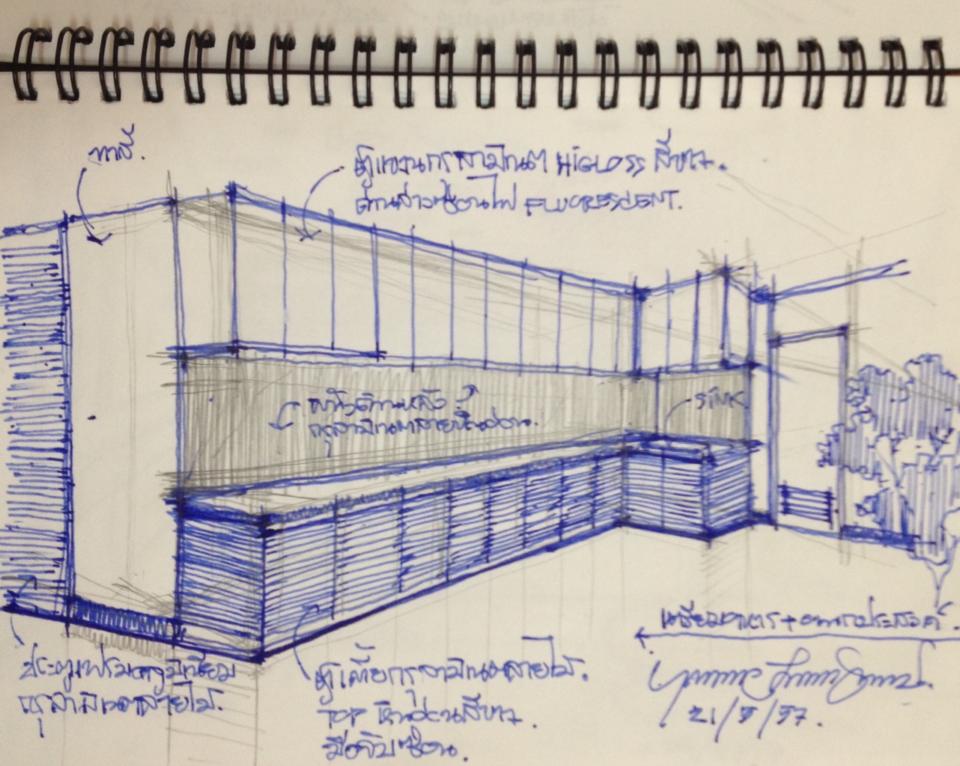 ทาสี.
ตู้แขวนกรุลามิเนต HIGLOSS สีขาว.
ด้านล่างซ่อนไฟ FLUORESCENT.
ผนังด้านหลัง
กรุลามิเนตลายหินอ่อน.
SINK
ประตูเฟรมอลูมิเนียม
กรุลามิเนตลายไม้.
ตู้เตี้ยกรุลามิเนตลายไม้.
TOP หินอ่อนสีขาว.
มือจับซ่อน.
เตรียมอาหาร+อเนกประสงค์.